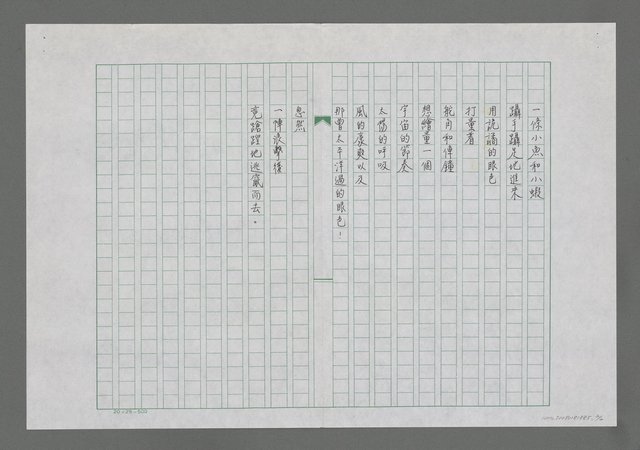 一條小魚和小蝦
躡手躡足地進來
用詭譎的眼色
打量著
舵舟和傳鐘
想繪畫一個
宇宙的節奏
太陽的呼吸
風的豪爽以及
那曹太平洋過的眼色！
忽然
一陣浪擊後
竟蹌踉地逃竄而去。
20×25=500